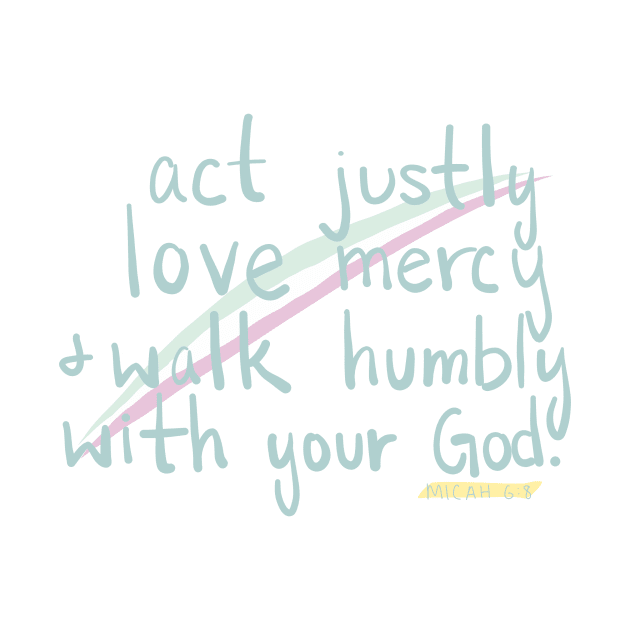 act justly
love mercy
& walk humbly
with your God.
MICAH 6:8